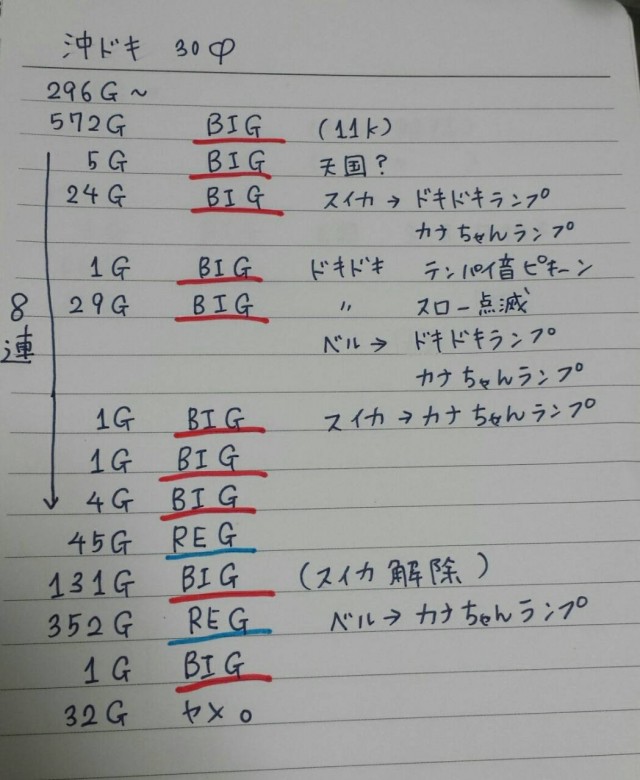 沖ドキ 30Φ
296G~
572G BIG (11k)
5G BIG 天国?
24G BIG スイカ → ドキドキランプ
カナちゃんランプ
1G BIG ドキドキ テンパイ音ピキーン
29G BIG 〃 スロー点滅
ベル → ドキドキランプ
カナちゃんランプ
8連
1G BIG スイカ → カナちゃんランプ
1G BIG
4G BIG
45G REG
131G BIG (スイカ解除)
352G REG ベル → カナちゃんランプ
1G BIG
32G ヤメ。